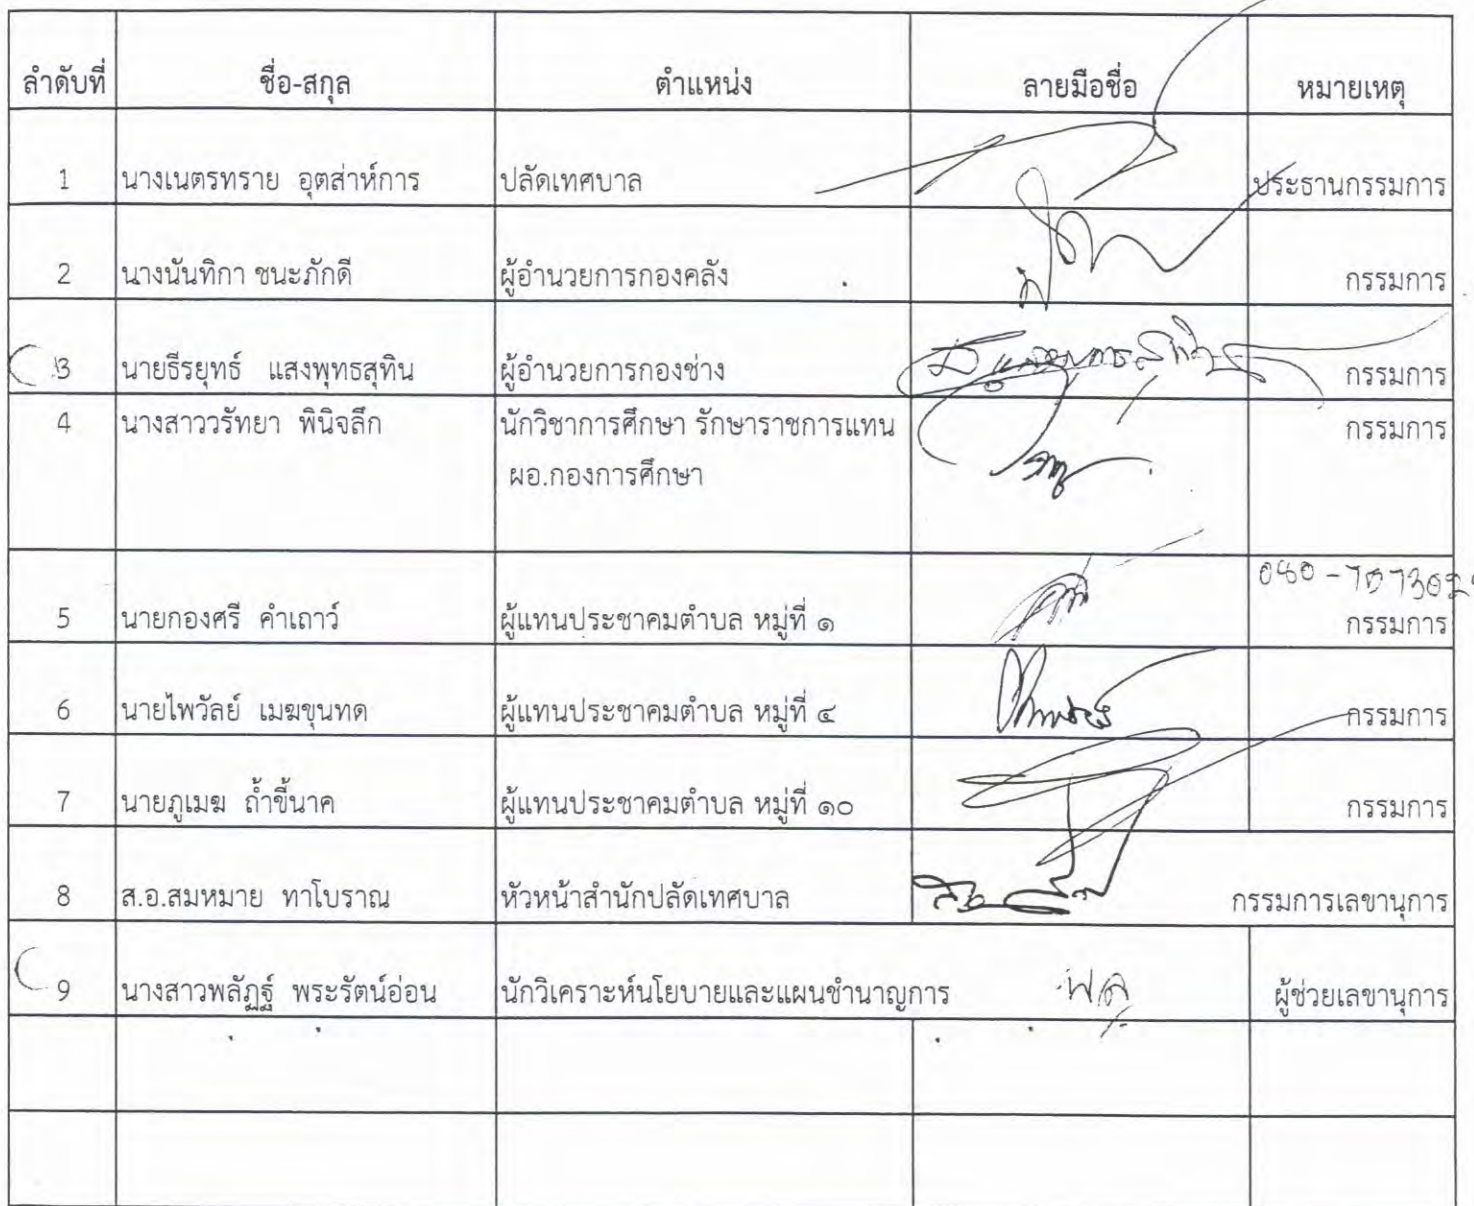 ลำดับที่ ชื่อ-สกุล ตำแหน่ง ลายมือชื่อ หมายเหตุ
1 นางเนตรทราย อุตส่าห์การ ปลัดเทศบาล ประธานกรรมการ
2 นางนันทิกา ชนะภักดี ผู้อำนวยการกองคลัง กรรมการ
3 นายธีรยุทธ์ แสงพุทธสุทิน ผู้อำนวยการกองช่าง กรรมการ
4 นางสาววรัทยา พินิจลึก นักวิชาการศึกษา รักษาราชการแทน กรรมการ
ผอ.กองการศึกษา
5 นายกองศรี คำเถาว์ ผู้แทนประชาคมตำบล หมู่ที่ ๑ กรรมการ
6 นายไพวัลย์ เมฆขุนทด ผู้แทนประชาคมตำบล หมู่ที่ ๔ กรรมการ
7 นายภูเมฆ ถ้ำขี้นาค ผู้แทนประชาคมตำบล หมู่ที่ ๑๐ กรรมการ
8 ส.อ.สมหมาย ทาโบราณ หัวหน้าสำนักปลัดเทศบาล กรรมการเลขานุการ
9 นางสาวพลัฏฐ์ พระรัตน์อ่อน นักวิเคราะห์นโยบายและแผนชำนาญการ ผู้ช่วยเลขานุการ